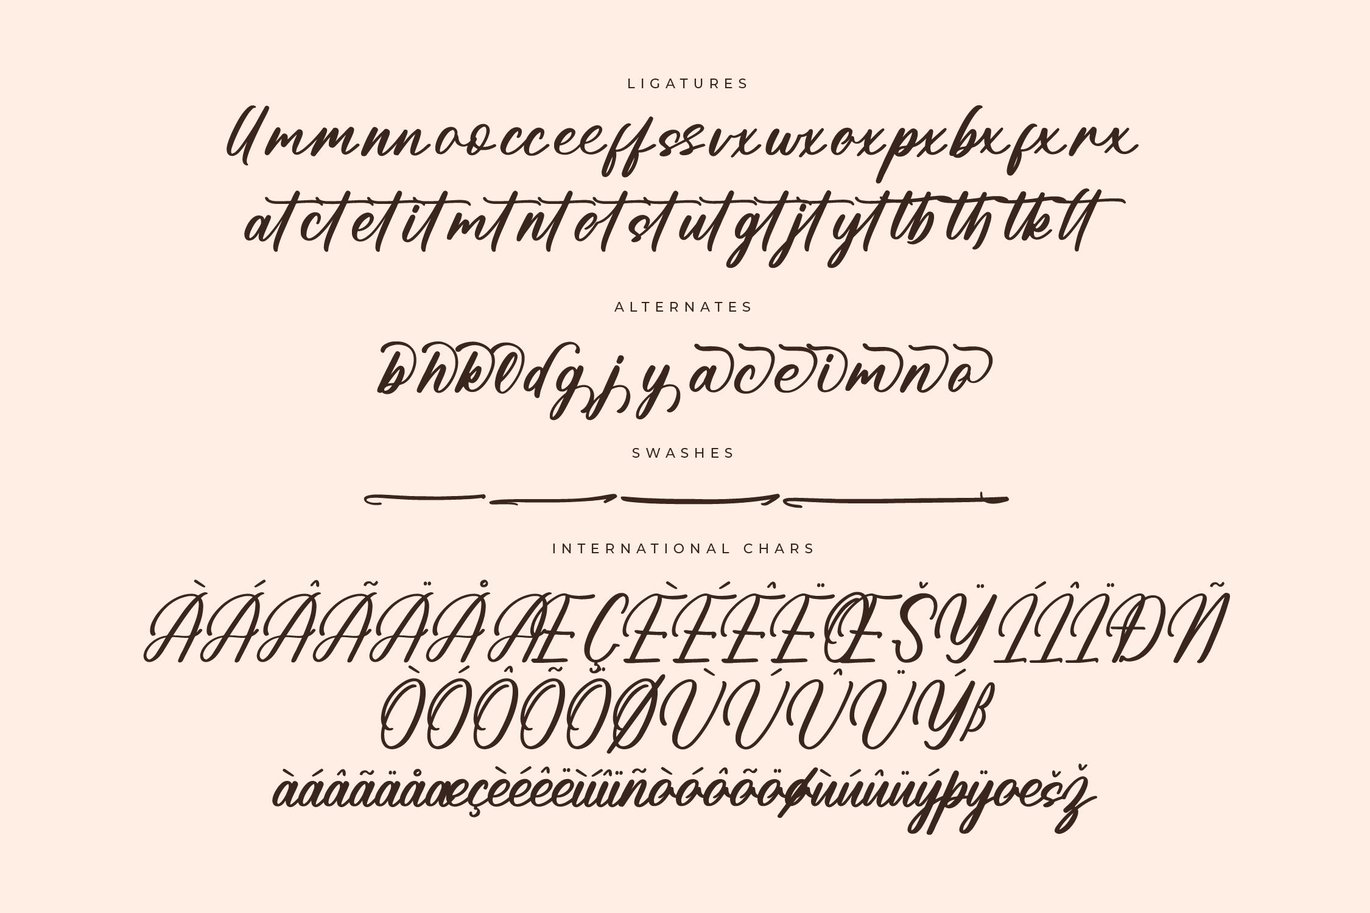 LIGATURES
ll mm nn oo cc ee ff ss vx wx ox px bx fx rx
at ct et it mt nt ot st ut gt jt yt tb th tk lt
ALTERNATES
b h k l d g j y a c e i m n o
SWASHES
INTERNATIONAL CHARS
ÀÁÂÃÄÅÆÇÈÉÊËŒŠŸÍÎÏÐÑ
ÒÓÔÕÖØÙÚÛÜÝß
àáâãäåæçèéêëìíîïñòóôõöøùúûüýþÿœšž